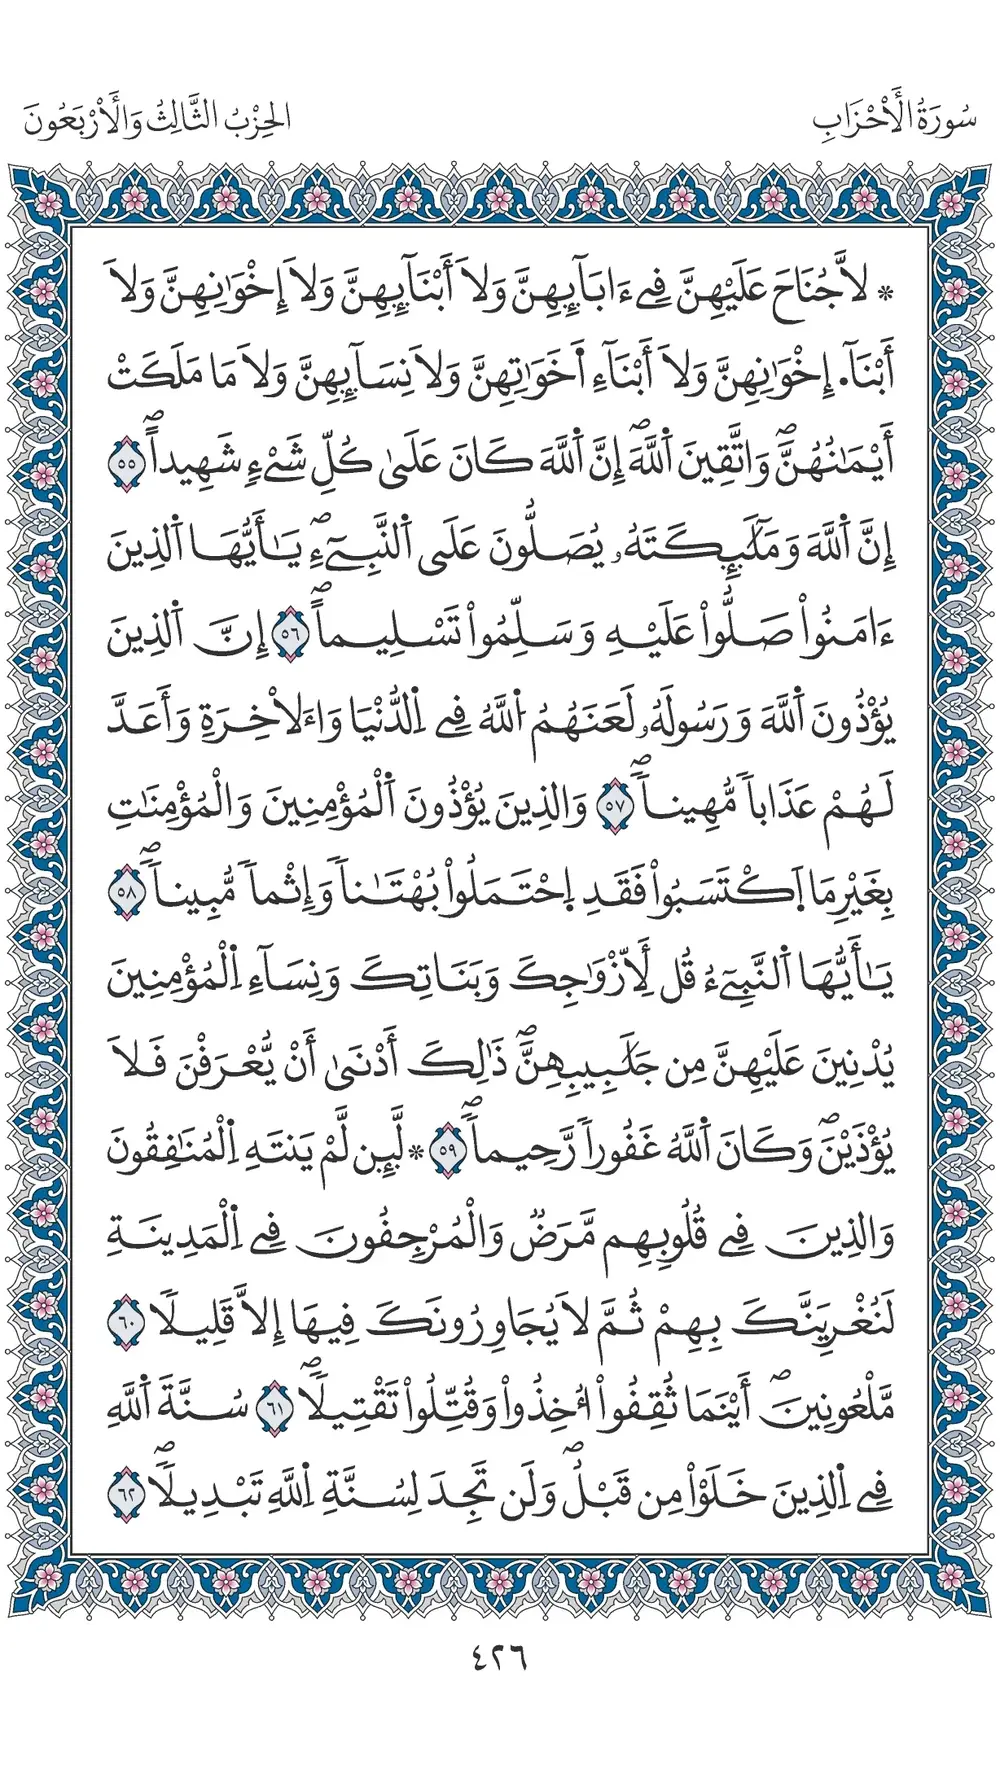 سُورَةُ الْأَحْزَابِ
الحِزْبُ الثَّالِثُ وَالْأَرْبَعُونَ
* لَّا جُنَاحَ عَلَيْهِنَّ فِےٓ ءَابَآئِهِنَّ وَلَآ أَبْنَآئِهِنَّ وَلَآ إِخْوَٰنِهِنَّ وَلَآ
أَبْنَآءِ اِ۪خْوَٰنِهِنَّ وَلَآ أَبْنَآءِ اَ۬خَوَٰتِهِنَّ وَلَا نِسَآئِهِنَّ وَلَا مَا مَلَكَتَ
اَيْمَٰنُهُنَّۖ وَاتَّقِينَ اَ۬للَّهَۖ إِنَّ اَ۬للَّهَ كَانَ عَلَىٰ كُلِّ شَےْءٖ شَهِيداًۖ ٥٥
إِنَّ اَ۬للَّهَ وَمَلَٰٓئِكَتَهُۥ يُصَلُّونَ عَلَى اَ۬لنَّبِےٓءِۖ يَٰٓأَيُّهَا اَ۬لذِينَ
ءَامَنُواْ صَلُّواْ عَلَيْهِ وَسَلِّمُواْ تَسْلِيماًۖ ٥٦ إِنَّ اَ۬لذِينَ
يُؤْذُونَ اَ۬للَّهَ وَرَسُولَهُۥ لَعَنَهُمُ اُ۬للَّهُ فِے اِ۬لدُّنْيَا وَالَاخِرَةِ وَأَعَدَّ
لَهُمْ عَذَاباٗ مُّهِيناٗۖ ٥٧ وَالذِينَ يُؤْذُونَ اَ۬لْمُؤْمِنِينَ وَالْمُؤْمِنَٰتِ
بِغَيْرِ مَا اَ۪كْتَسَبُواْ فَقَدِ اِ۪حْتَمَلُواْ بُهْتَٰناٗ وَإِثْماٗ مُّبِيناٗۖ ٥٨
يَٰٓأَيُّهَا اَ۬لنَّبِےٓءُ قُل لِّأَزْوَٰجِكَ وَبَنَاتِكَ وَنِسَآءِ اِ۬لْمُؤْمِنِينَ
يُدْنِينَ عَلَيْهِنَّ مِن جَلَٰبِيبِهِنَّۖ ذَٰلِكَ أَدْنَىٰٓ أَنْ يُّعْرَفْنَ فَلَا
يُؤْذَيْنَۖ وَكَانَ اَ۬للَّهُ غَفُوراٗ رَّحِيماٗۖ ٥٩ * لَّئِن لَّمْ يَنتَهِ اِ۬لْمُنَٰفِقُونَ
وَالذِينَ فِے قُلُوبِهِم مَّرَضٞ وَالْمُرْجِفُونَ فِے اِ۬لْمَدِينَةِ
لَنُغْرِيَنَّكَ بِهِمْ ثُمَّ لَا يُجَاوِرُونَكَ فِيهَآ إِلَّا قَلِيلاٗ ٦٠
مَّلْعُونِينَۖ أَيْنَمَا ثُقِفُوٓاْ أُخِذُواْ وَقُتِّلُواْ تَقْتِيلاٗۖ ٦١ سُنَّةَ اَ۬للَّهِ
فِے اِ۬لذِينَ خَلَوْاْ مِن قَبْلُۖ وَلَن تَجِدَ لِسُنَّةِ اِ۬للَّهِ تَبْدِيلاٗۖ ٦٢
٤٢٦